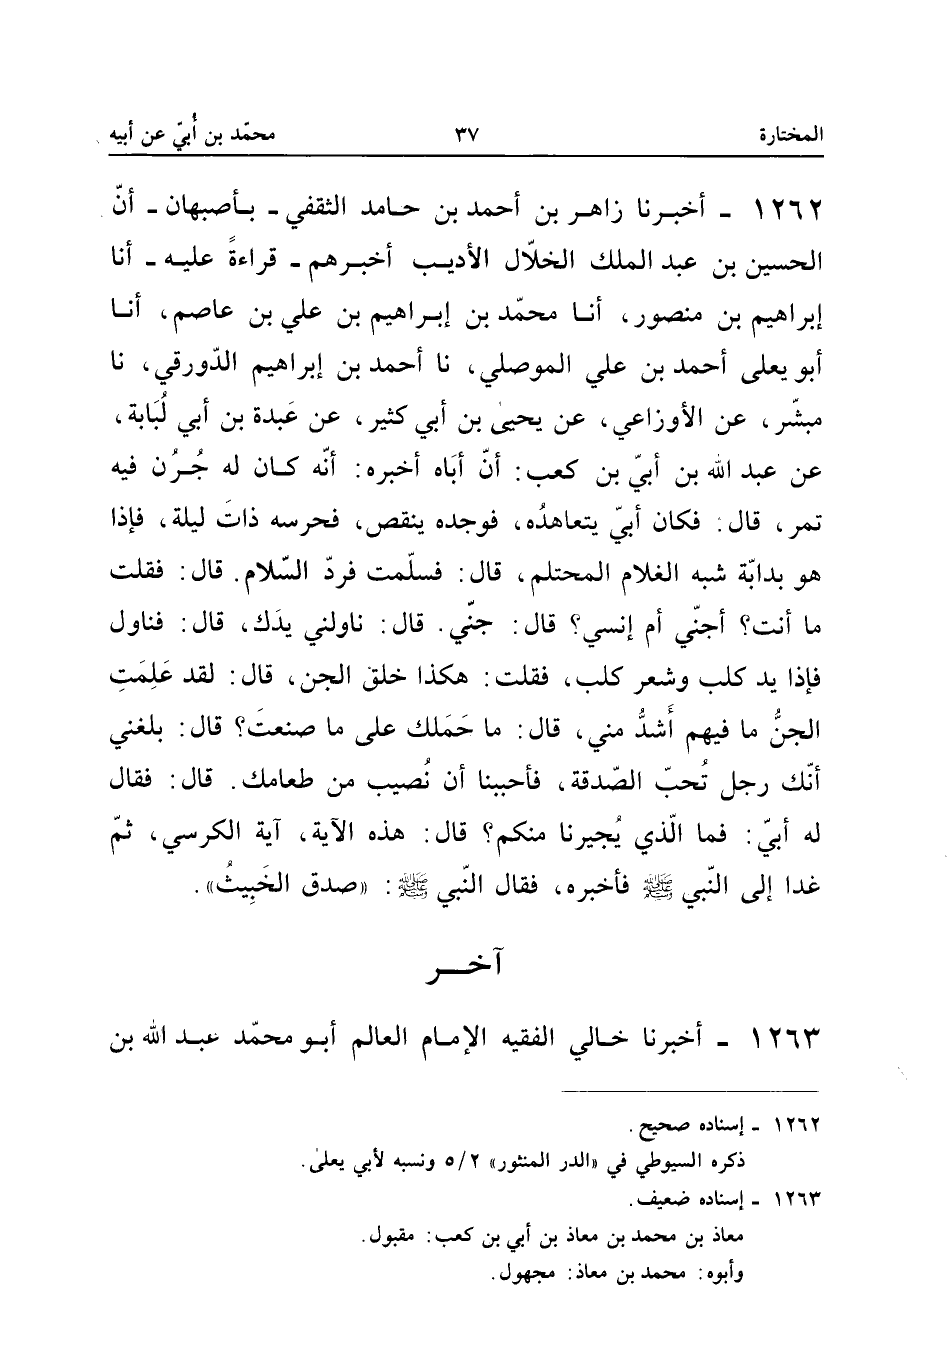 المختارة ٣٧ محمّد بن أُبيّ عن أبيه
١٢٦٢ ـ أخبرنا زاهر بن أحمد بن حامد الثقفي ـ بأصبهان ـ أنّ
الحسين بن عبد الملك الخلّال الأديب أخبرهم ـ قراءةً عليه ـ أنا
إبراهيم بن منصور، أنا محمّد بن إبراهيم بن علي بن عاصم، أنا
أبو يعلى أحمد بن علي الموصلي، نا أحمد بن إبراهيم الدّورقي، نا
مبشّر، عن الأوزاعي، عن يحيىٰ بن أبي كثير، عن عَبدة بن أبي لُبَابة،
عن عبد الله بن أبيّ بن كعب: أنّ أبَاه أخبره: أنّه كان له جُرُن فيه
تمر، قال: فكان أبيّ يتعاهدُه، فوجده ينقص، فحرسه ذاتَ ليلة، فإذا
هو بدابّة شبه الغلام المحتلم، قال: فسلّمت فردّ السّلام. قال: فقلت
ما أنت؟ أجنّي أم إنسي؟ قال: جنّي. قال: ناولني يدَك، قال: فناول
فإذا يد كلب وشعر كلب، فقلت: هكذا خلق الجن، قال: لقد عَلِمَتِ
الجنُّ ما فيهم أَشدُّ مني، قال: ما حَمَلك على ما صنعتَ؟ قال: بلغني
أنّك رجل تُحبّ الصّدقة، فأحببنا أن نُصيب من طعامك. قال: فقال
له أبيّ: فما الّذي يُجيرنا منكم؟ قال: هذه الآية، آية الكرسي، ثمّ
غدا إلى النّبي ﷺ فأخبره، فقال النّبي ﷺ: «صدق الخَبِيثُ».
آخر
١٢٦٣ ـ أخبرنا خالي الفقيه الإمام العالم أبو محمّد عبد الله بن
١٢٦٢ ـ إسناده صحيح.
ذكره السيوطي في «الدر المنثور» ٥/٢ ونسبه لأبي يعلىٰ.
١٢٦٣ ـ إسناده ضعيف.
معاذ بن محمد بن معاذ بن أبي بن كعب: مقبول.
وأبوه: محمد بن معاذ: مجهول.